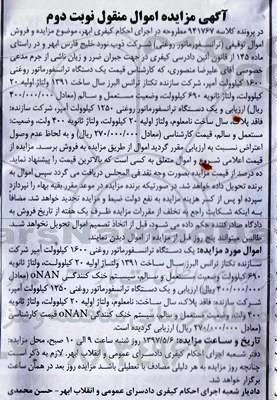 آگهی مزایده اموال منقول نوبت دوم
در پرونده کلاسه ۹۴۱۷۶۷ مطروحه در اجرای احکام کیفری ابهر، موضوع مزایده و فروش
اموال توقیفی (ترانسفورماتور روغنی) شرکت ذوب نورد خلیج فارس ابهر و در راستای
ماده ۱۴۵ از قانون آئین دادرسی کیفری در جهت جبران ضرر و زیان ناشی از جرم مدعی
خصوصی آقای علیرضا منصوری، که کارشناس قیمت یک دستگاه ترانسفورماتور روغنی
۱۶۰۰ کیلوولت آمپر شرکت سازنده: نیان ترانس البرز سال ساخت ۱۳۹۱ ولتاژ اولیه ۲۰
کیلوولت، ولتاژ ثانویه ۶۹۰ کیلوولت وضعیت مستعمل و سالم (۴۰۰/۰۰۰/۰۰۰
ریال) و یک دستگاه ترانسفورماتور روغنی ۱۲۵۰ کیلوولت آمپر، شرکت سازنده:
فاقد پلاک، سال ساخت نامعلوم، ولتاژ اولیه ۲۰ کیلوولت، ولتاژ ثانویه ۴۰۰ ولت، وضعیت:
مستعمل و سالم، قیمت کارشناسی (معادل ۲۷۰/۰۰۰/۰۰۰ ریال) و به لحاظ عدم وصول
اعتراض نسبت به ارزیابی مقرر گردید اموال از طریق مزایده به فروش برسد. مزایده از
قیمت اعلامی شروع و اموال متعلق به کسی است که بالاترین قیمت را پیشنهاد نماید.
ده درصد از قیمت مزایده بصورت وجه نقد فی المجلس دریافت می گردد سپس اموال به
برنده تحویل داده خواهد شد. در صورتیکه برنده مزایده در موعد مقرر بقیه بهاء را نپردازد
سپرده او پس از کسر هزینه مزایده به نفع دولت ضبط و مزایده تجدید خواهد شد. مضافاً
به اینکه شکایت راجع به تخلف از مقررات مزایده ظرف یک هفته از تاریخ فروش به
دادگاه صادر کننده حکم داده می شود. قبل از اتخاذ تصمیم اموال تحویل نخواهد شد.
طالبین میتوانند پنج روز قبل از مزایده از اموال دیدن نمایند.
اموال مورد مزایده: یک دستگاه ترانسفورماتور روغنی ۱۶۰۰ کیلوولت آمپر شرکت
سازنده: نیان ترانس البرز سال ساخت ۱۳۹۱ ولتاژ اولیه ۲۰ کیلوولت، ولتاژ ثانویه
۶۹۰ کیلوولت وضعیت مستعمل و سالم، سیستم خنک کنندگی oNAN (معادل
۴۰۰/۰۰۰/۰۰۰ ریال) ارزیابی و یک دستگاه ترانسفورماتور روغنی ۱۲۵۰ کیلوولت آمپر،
شرکت سازنده: فاقد پلاک، سال ساخت: نامعلوم، ولتاژ اولیه ۲۰ کیلوولت، ولتاژ ثانویه
۴۰۰ ولت، وضعیت: مستعمل و سالم، سیستم خنک کنندگی oNAN قیمت کارشناسی
(معادل ۲۷۰/۰۰۰/۰۰۰ ریال) ارزیابی گردیده است.
تاریخ و ساعت مزایده: مزایده روز شنبه ۱۳۹۷/۵/۶ ساعت ۹ الی ۱۰ صبح، محل مزایده:
دفتر شعبه اجرای احکام کیفری دادسرای عمومی و انقلاب ابهر. لازم به ذکر است
چنانچه روز مزایده به هر دلیلی مصادف با تعطیلی باشد مزایده روز بعد در همان ساعت
برگزار خواهد شد.
دادیار شعبه اجرای احکام کیفری دادسرای عمومی و انقلاب ابهر- حسن محمدی